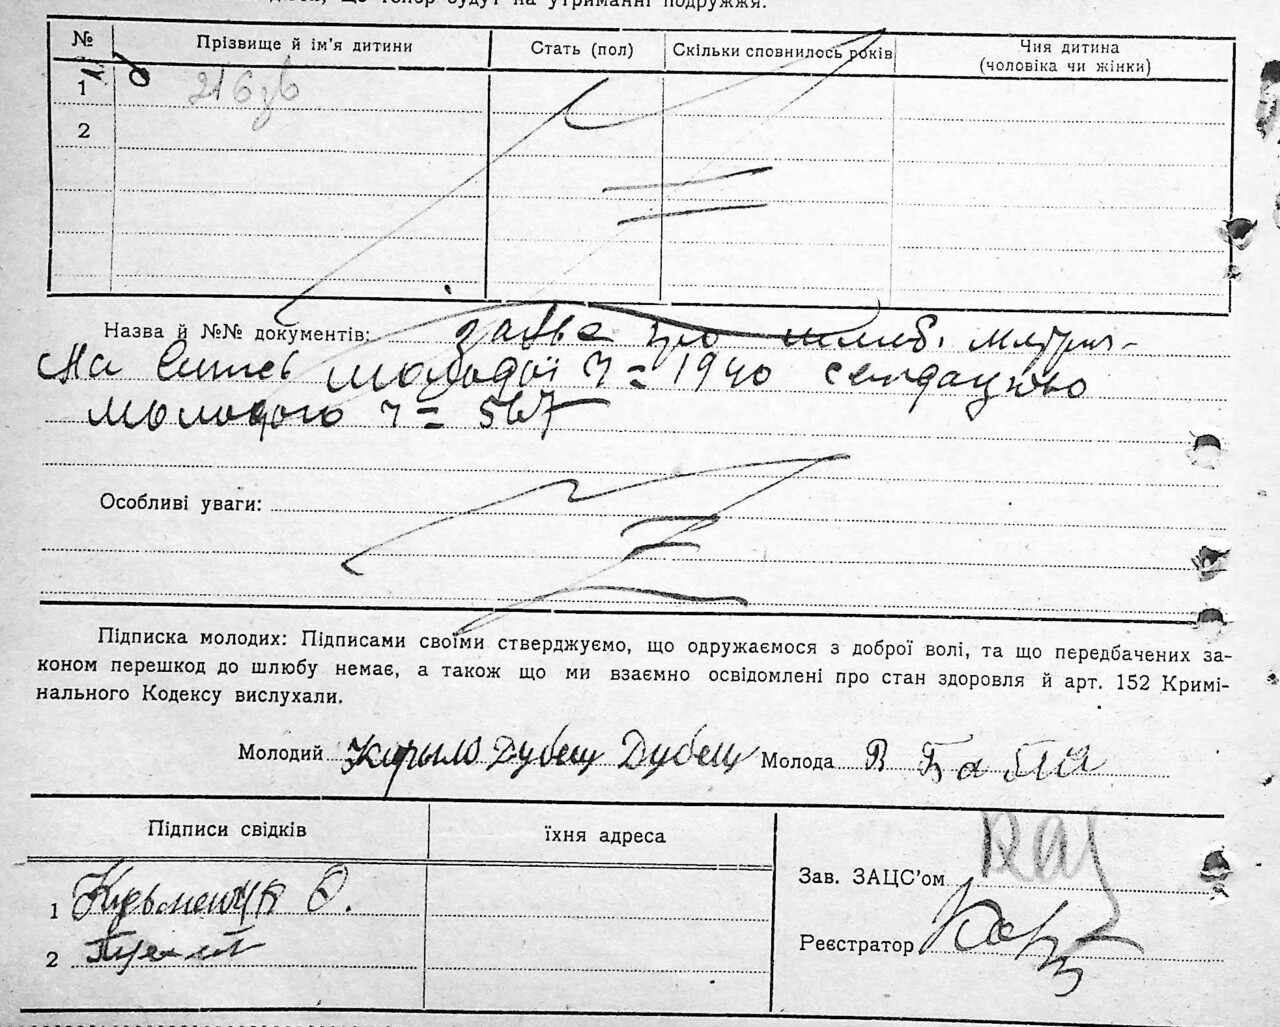 що тепер будут на утриманні подружжя.
№ Прізвище й ім'я дитини Стать (пол) Скільки сповнилось років Чия дитина
(чоловіка чи жінки)
1
2
Назва й №№ документів: заява про шлюб.
На молодої Ч = 1940
молодого Ч = 567
Особливі уваги:
Підписка молодих: Підписами своїми стверджуємо, що одружаємося з доброї волі, та що передбачених за-
коном перешкод до шлюбу немає, а також що ми взаємно освідомлені про стан здоровля й арт. 152 Кримі-
нального Кодексу вислухали.
Молодий Кирыло Дубец Дубец Молода В Баб
Підписи свідків їхня адреса
Зав. ЗАЦС'ом
1 Кузьменчук О.
Реєстратор
2